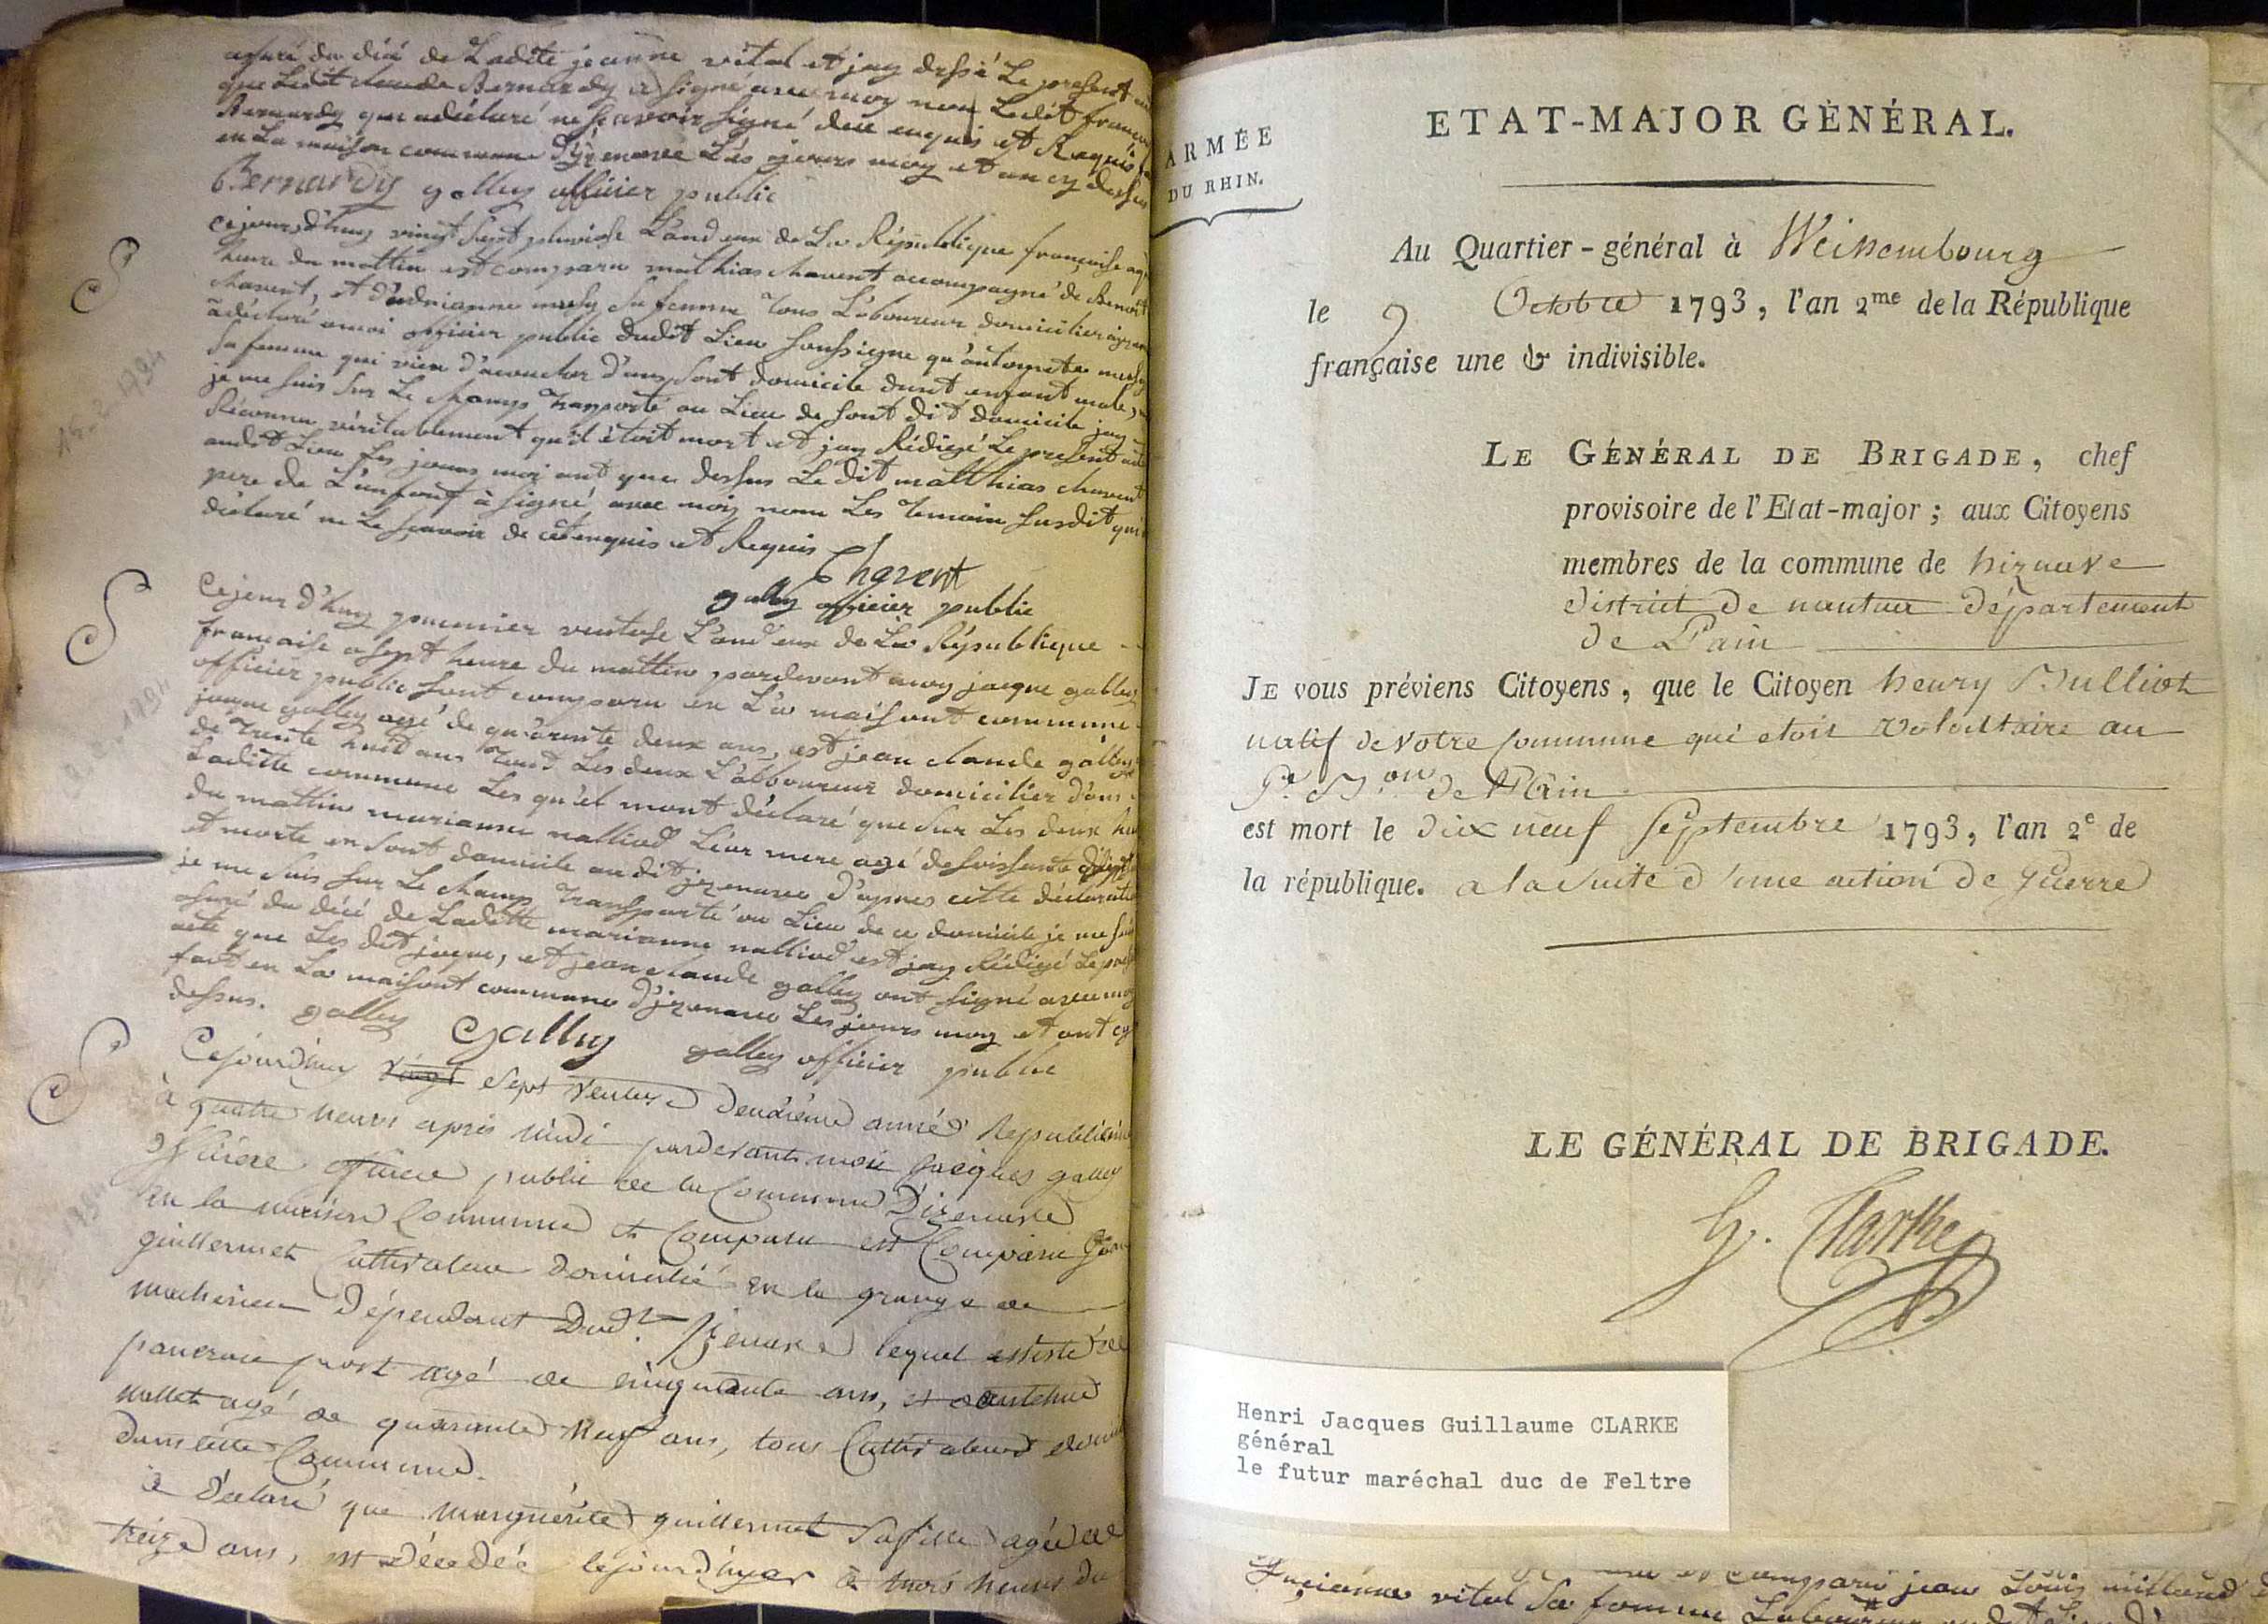 assuré du décé de Ladite jeanne vital et jay dressé Le present
que Ledit claude Bernardy a signé avec moy non Ledit françois
Bernardy qui a déclaré ne sçavoir signé dece enquis et Requis
en La maison commune les jours moy et an cy dessus
Bernardy galley officier public
Cejourd'huy vingt sept pluviose L'and eux de La République françoise
heure du mattin est comparu mathias chavent accompagné de Benoit
chavent, et sa femme tous Laboureur domicilier
a déclaré a moi officier public dudit Lieu soussigne
sa femme qui vien d'acoucher dans sont domicile dunt enfant male,
je me suis sur Le champs transporté au Lieu de sont dit domicile jay
Réconnu véritablement qu'il étoit mort et jay Rédigé Le present
audit Lieu Les jours moi ant que dessus Le dit matthias chavent
pere de L'enfant à signé avec moy nom Les temoin susdit qui
déclaré ne Le sçavoir de cet enquis et Requis
Chavent
galley officier public
Cejour d'huy premier ventose L'and eux de La République
francaise a sept heure du mattin pardevant moy jacque galley
officier public sont comparu en La maisont commune
jaque galley agé de quarente deux ans, est jean claude galley
de trente huit ans tout Les deux Labboureur domicilier dans
Ladite commune Les qu'el mont déclaré que sur Les deux
du mattin marianne nalliod Leur mere agé de soissente
et morte en sont domicile au dit d'apres cette déclaration
je me suis sur Le champs transporté au Lieu de ce domicile je me suis
assuré du décé de Ladette marianne nalliod est jay Rédigé Le
acte que Les dit jaque, et jean claude galley ont signé avec moy
fait en La maisont commune d'izenave Les jours moy et ant cy
dessus. galley Galley galley officier public
Cejourdhuy vingt sept ventose deuxième année Republicaine
à quatre heures après midi pardevant moi Jacques galley
officier public de la Commune D'izenave
en la maison Commune est Comparu
guillermet Cultivateur domicilié en la grange de
dépendant Dudt Izenave lequel assisté de
agé de cinquante ans, et
agé de quarante neuf ans, tous Cultivateurs
dans cette Commune.
a déclaré que marguérite guillermet sa fille agée de
treize ans, est décédée cejourdhuyer à trois heures du
15-2-1794
ARMÉE
DU RHIN.
ETAT-MAJOR GÉNÉRAL.
Au Quartier-général à Weissembourg
le 9 Octobre 1793, l'an 2me de la République
française une & indivisible.
LE GÉNÉRAL DE BRIGADE, chef
provisoire de l'Etat-major ; aux Citoyens
membres de la commune de hiznave
district de nantua département
de L'ain
JE vous préviens Citoyens, que le Citoyen henry Bulliot
natif de votre Commune qui etoit volontaire au
de l'Ain
est mort le dix neuf Septembre 1793, l'an 2e de
la république. a la suite d'une action de guerre
LE GÉNÉRAL DE BRIGADE.
G. Clarke
Henri Jacques Guillaume CLARKE
général
le futur maréchal duc de Feltre
comparu jean Louis
vital sa femme